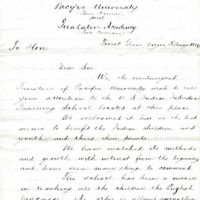 Pacific University
and
Tualatin Academy
To Hon
Forest Grove Oregon
Dear Sir
We, the undersigned
Trustees of Pacific University wish to call
your attention to the U.S. Indian Industrial
Training School located at this place.
We believe it has been as the best
means to benefit the Indian children and
youth, and others their parents.
We have watched its methods
and growth with interest from the beginning
and have seen many things to commend.
The school has been a success
in teaching all the children the English
language. No other is allowed